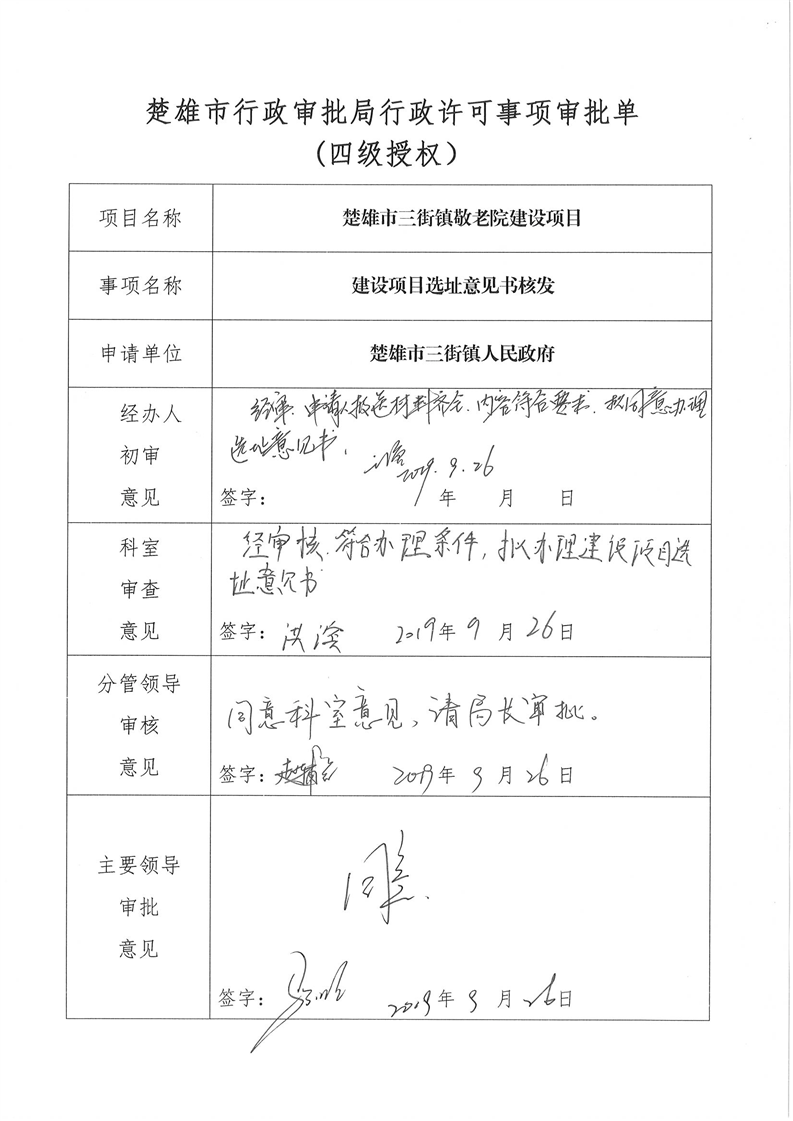 楚雄市行政审批局行政许可事项审批单
(四级授权)
项目名称 楚雄市三街镇敬老院建设项目
事项名称 建设项目选址意见书核发
申请单位 楚雄市三街镇人民政府
经办人
初审
意见
经审、申请人报送材料齐全、内容符合要求、拟同意办理
选址意见书,
2019.9.26
签字: 年 月 日
科室
审查
意见
经审核、符合办理条件,拟办理建设项目选
址意见书
签字: 2019年9月26日
分管领导
审核
意见
同意科室意见,请局长审批。
签字: 2019年9月26日
主要领导
审批
意见
同意.
签字: 2019年9月26日